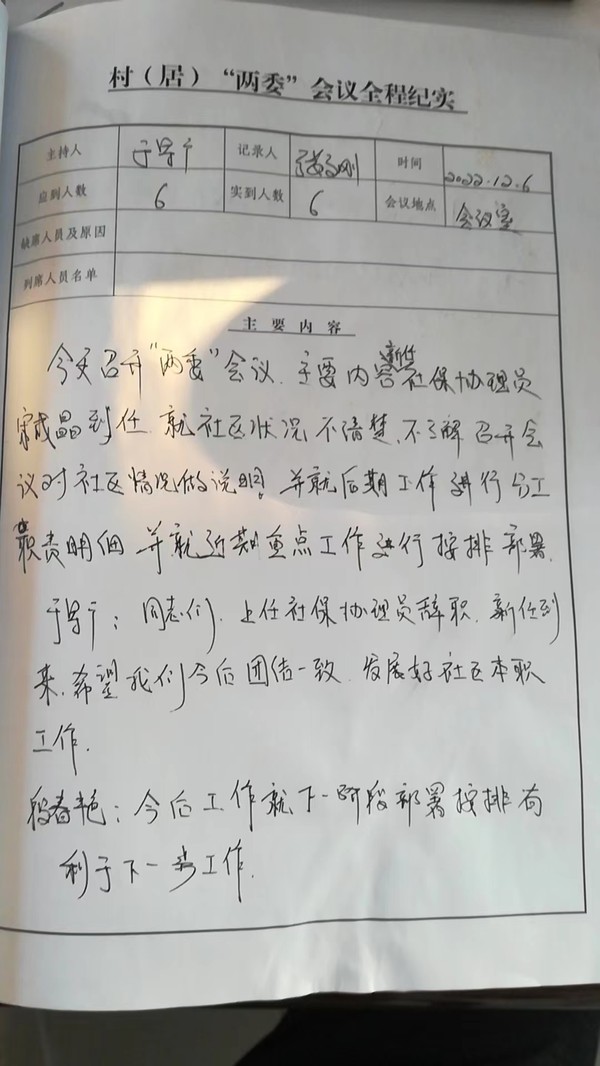 村（居）“两委”会议全程纪实
主持人 记录人 时间 2022.12.6
应到人数 6 实到人数 6 会议地点 会议室
缺席人员及原因
列席人员名单
主要内容
今天召开“两委”会议.主要内容新任社保协理员
晶到任 就社区状况不清楚、不了解 召开会
议对社区情况做说明。并就后期工作进行分工
职责明细 并就近期重点工作进行按排部署.
于: 同志们.上任社保协理员辞职.新任到
来.希望我们今后团结一致 发展好社区本职
工作.
段春艳: 今后工作就下一阶段部署按排有
利于下一步工作.